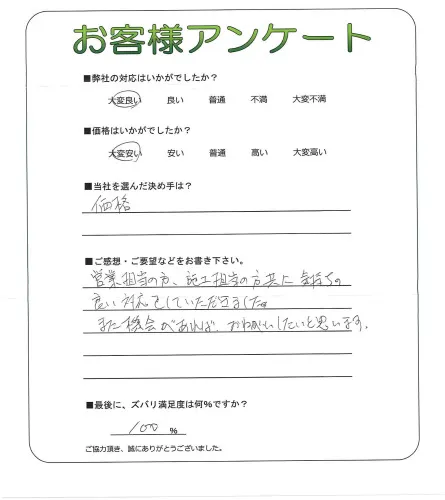 お客様アンケート
■弊社の対応はいかがでしたか？
大変良い 良い 普通 不満 大変不満
■価格はいかがでしたか？
大変安い 安い 普通 高い 大変高い
■当社を選んだ決め手は？
価格
■ご感想・ご要望などをお書き下さい。
営業担当の方、施工担当の方共に気持ちの
良い対応をしていただきました。
また機会があれば、おねがいしたいと思います。
■最後に、ズバリ満足度は何％ですか？
100 %
ご協力頂き、誠にありがとうございました。